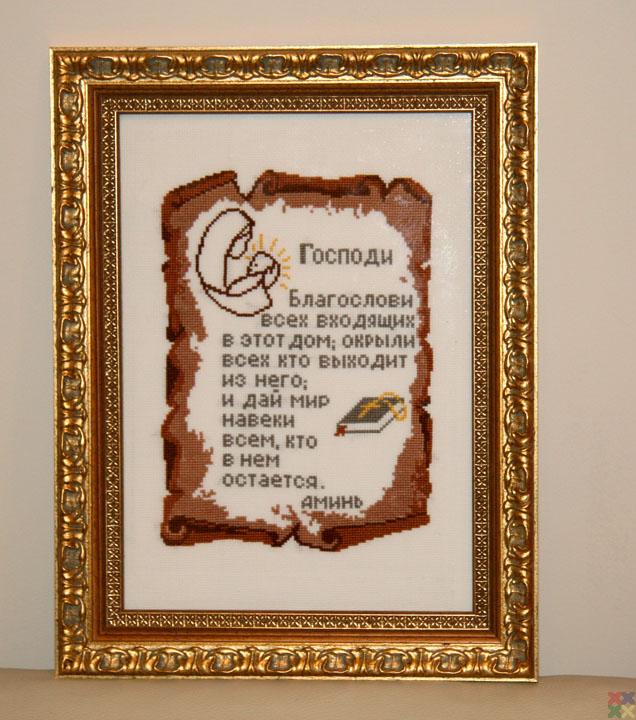 Господи
Благослови
всех входящих
в этот дом; окрыли
всех кто выходит
из него;
и дай мир
навеки
всем, кто
в нем
остается.
аминь